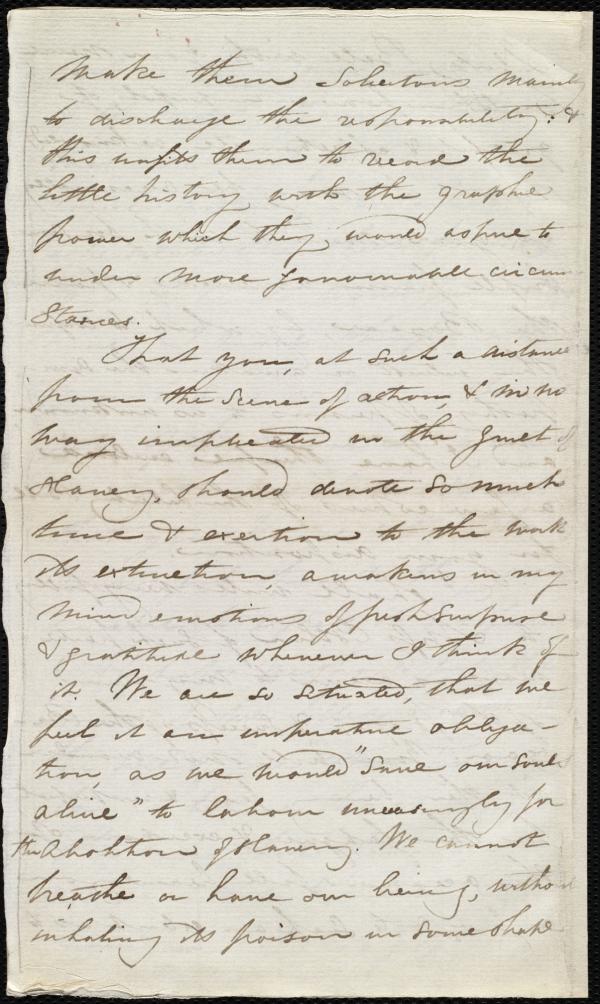 make them solicitous mainly
to discharge the responsibility: &
this unfits them to record the
little history with the graphic
power which they would aspire to
under more favourable circum
stances.
That you, at such a distance
from the scene of action, & in no
way implicated in the guilt of
slavery, should devote so much
time & exertion to the work
its extinction, awakens in my
mind emotions of fresh surprise
& gratitude whenever I think of
it. We are so situated, that we
feel it an imperative obliga-
tion, as we would "save our souls
alive" to labour unceasingly for
the abolition of slavery. We cannot
breathe or have our being, without
inhaling its poison in some shape